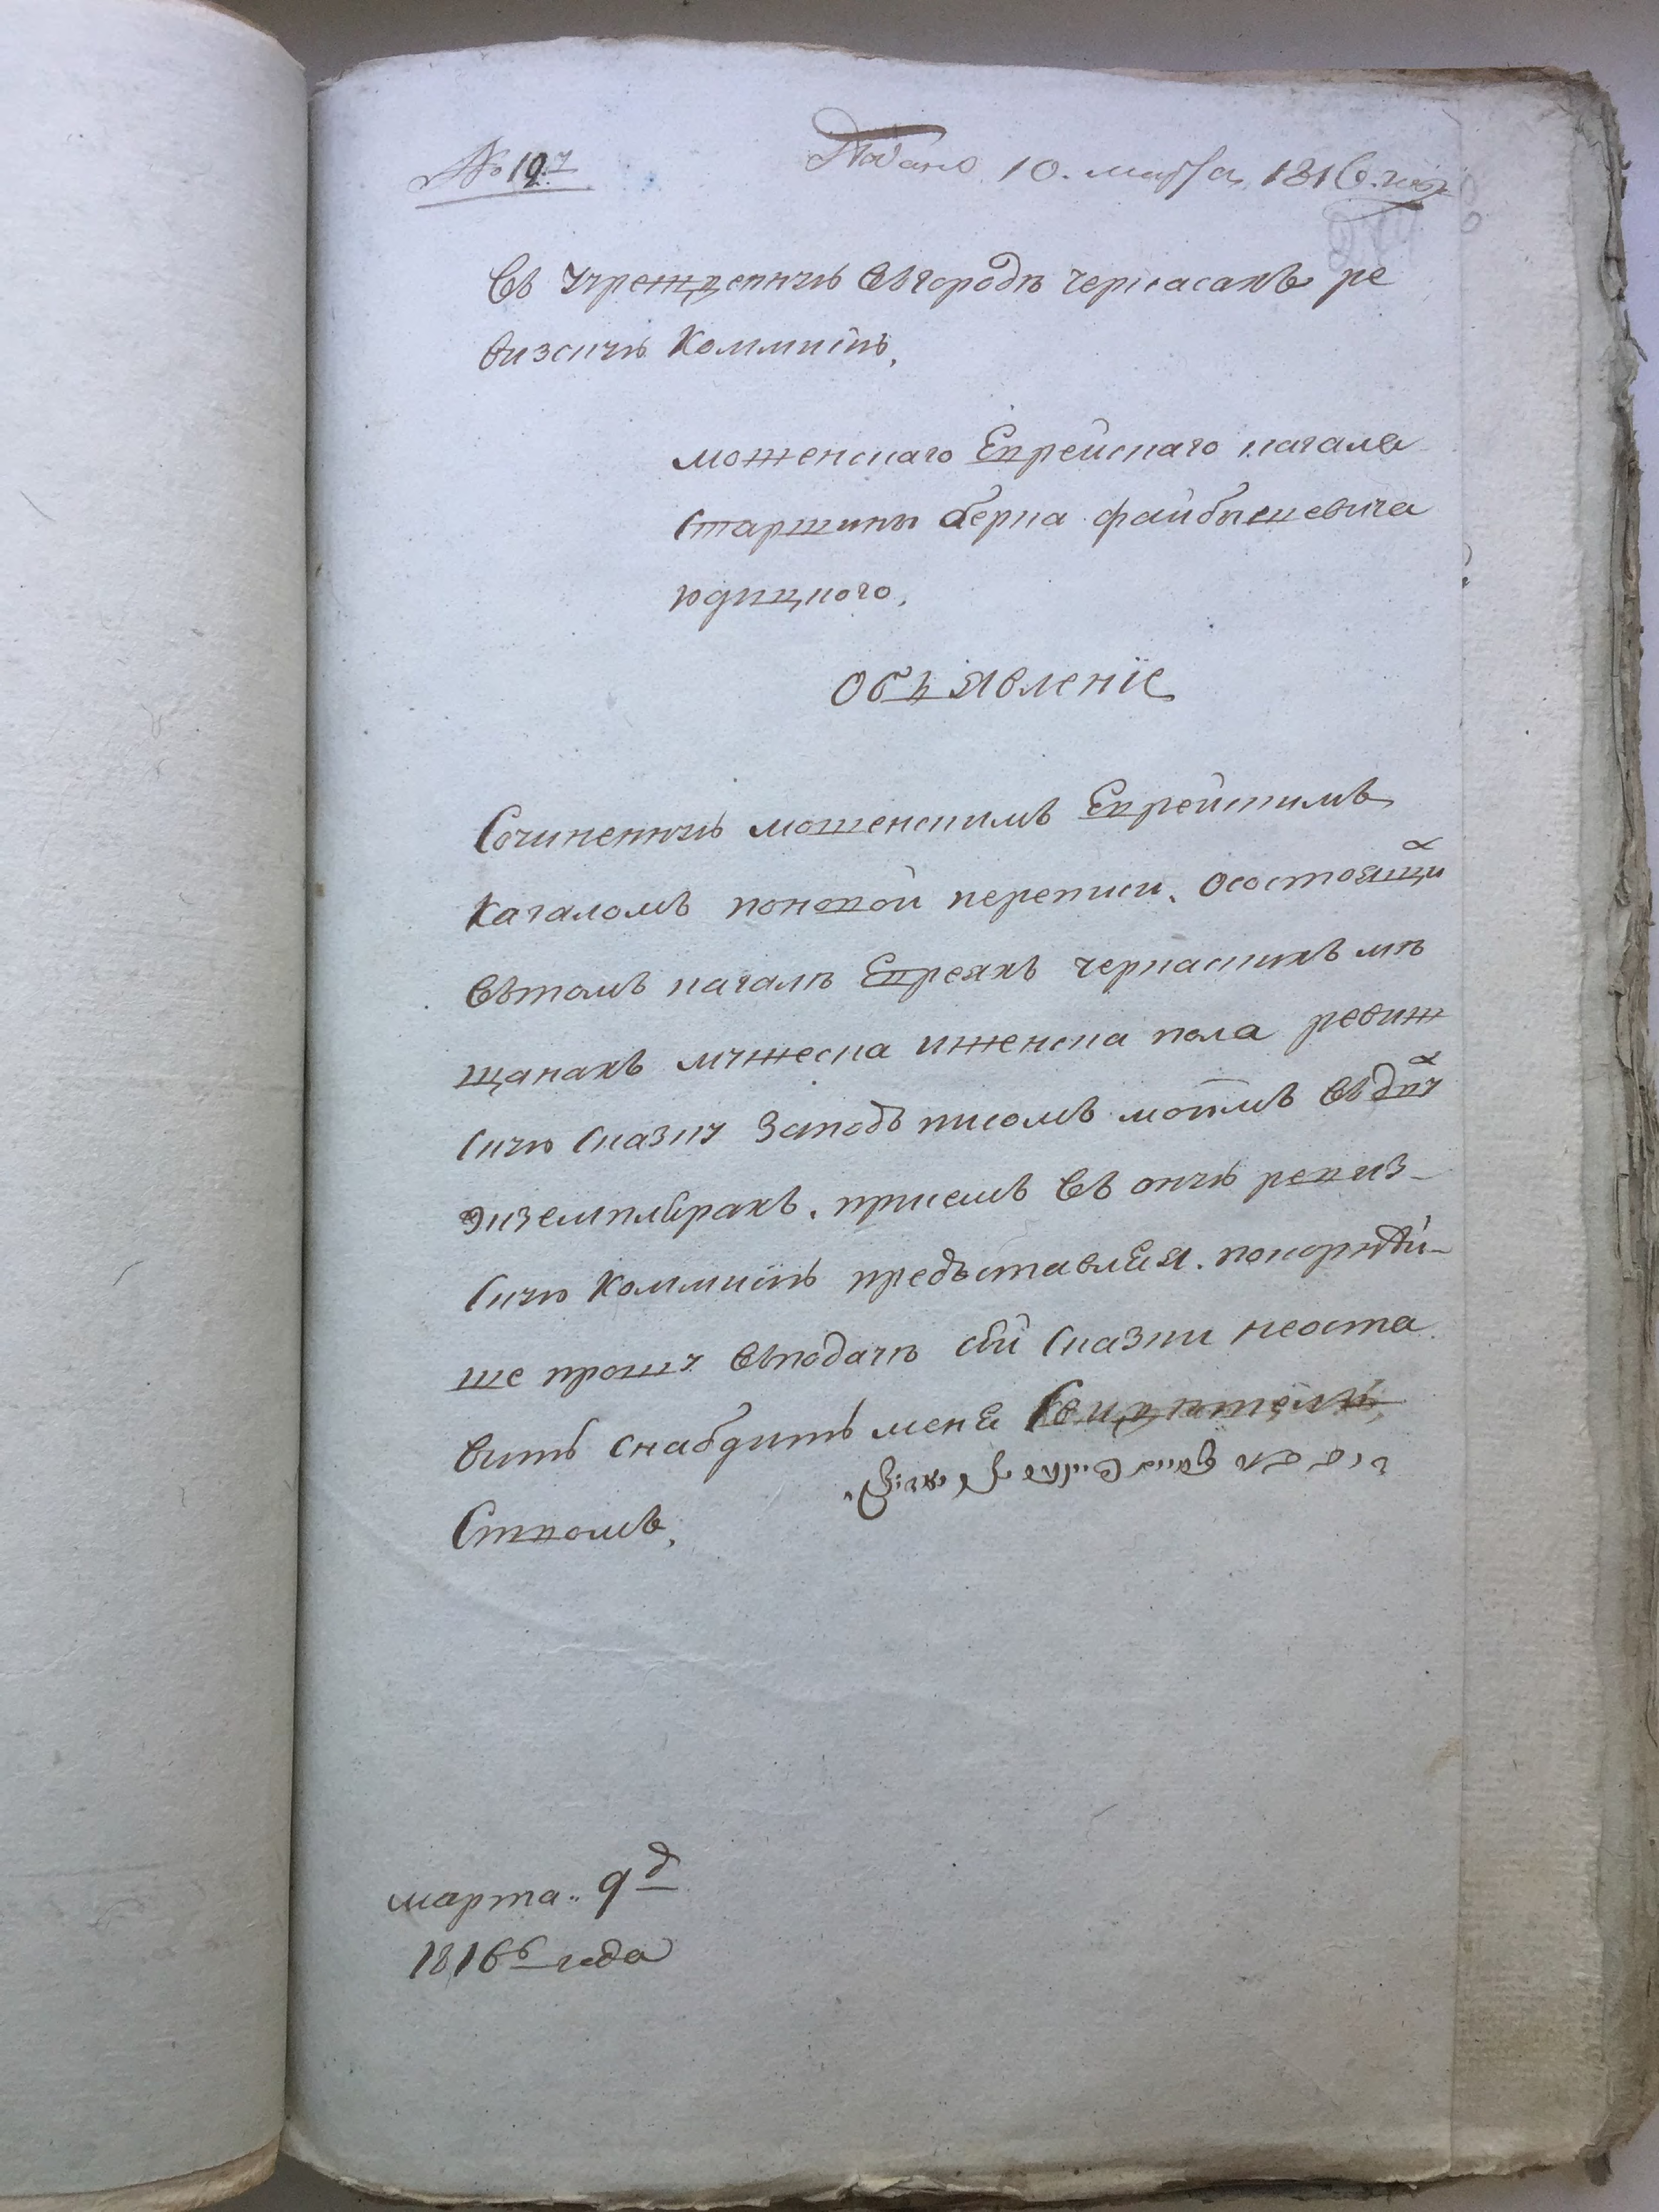 № 197
Подано 10. марта 1816. года
Въ учрежденную въ городѣ черкасахъ ре
визскую Коммисїю,
мошенскаго Еврейскаго кагала
Старшины берка файбышевича
юдицкого,
Объявленїе
Сочиненную мошенскимъ Еврейскимъ
Кагаломъ поновой переписи. осостоящихъ
Вътомъ кагалѣ Евреяхъ черкаскихъ мѣ
щанахъ мужеска иженска пола ревиж
скую сказку Заподъписомъ моимъ въ двухъ
экземплярахъ. присемъ въ оную ревиз-
скую Коммисїю предъставляя. покорнѣй-
ше прошу въподачѣ сей сказки неоста
вить снабдить меня Свидѣтель
Ством​ъ,
марта. 9д
1816б года